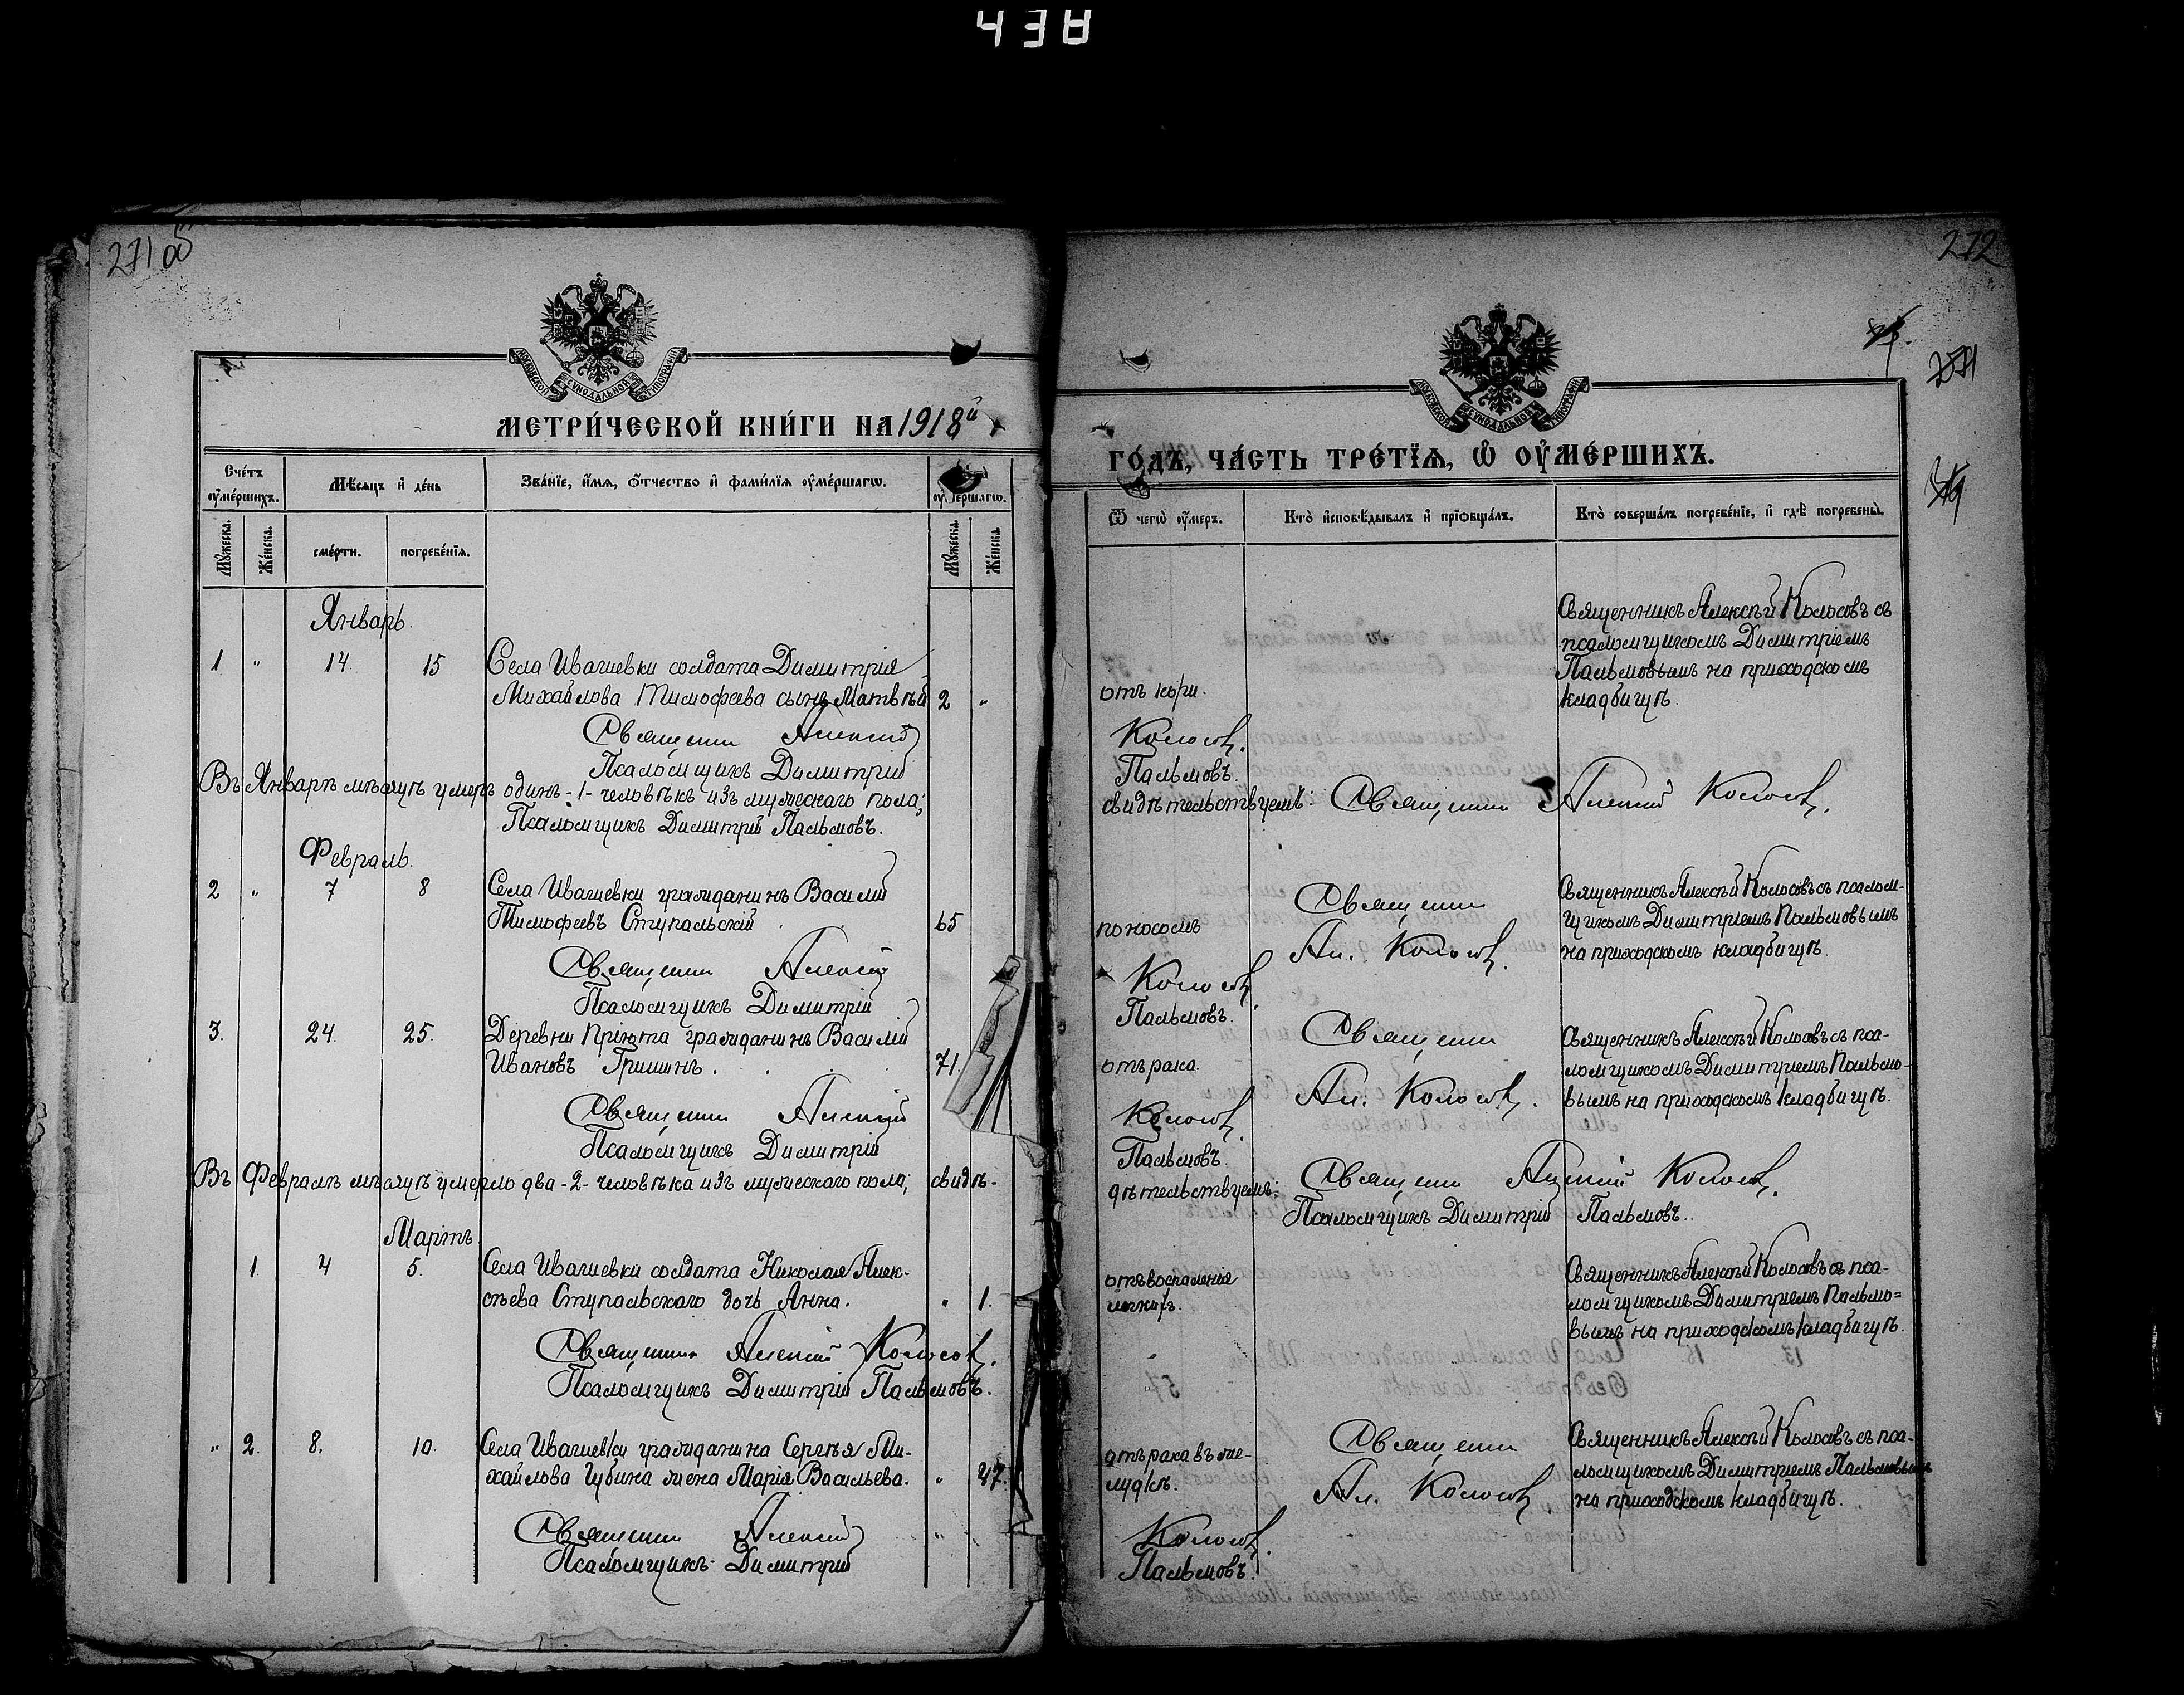 438
271 об
МОСКОВСКОЙ СѴНОДАЛЬНОЙ ТИПОГРАФІИ
МЕТРИ́ЧЕСКОЙ КНИ́ГИ НА 1918й
Сче́тъ ᲂу҆ме́ршихъ.
Мѣ́сѧцъ и҆ де́нь
Зва́нїе, и҆́мѧ, ѻ҆́тчество и҆ фами́лїѧ ᲂу҆ме́ршагѡ.
ᲂу҆ме́ршагѡ.
Мꙋ́жеска.
Же́нска.
сме́рти.
погребе́нїѧ.
Мꙋ́жеска.
Же́нска.
Январь.
1 " 14. 15 Села Ивашевки солдата Димитрія
Михайлова Тимофеева сынъ Матвѣй 2 "
Священник Алексій
Псаломщикъ Димитрій
Въ Январѣ мѣсяцѣ умеръ одинъ -1- человѣкъ изъ мужескаго пола;
Псаломщикъ Димитрій Пальмовъ.
Февраль.
2 " 7 8 Села Ивашевки гражданинъ Василій
Тимофеевъ Ступальскій 65
Священник Алексій
Псаломщикъ Димитрій
3. 24. 25. Деревни Пріюта гражданинъ Василій
Ивановъ Гришинъ. 71.
Священник Алексій
Псаломщикъ Димитрій
Въ Февралѣ мѣсяцѣ умерло два -2- человѣка изъ мужескаго пола; свидѣ-
Мартъ.
1. 4 5. Села Ивашевки солдата Николая Алек-
сѣева Ступальскаго дочь Анна. " 1.
Священник Алексій Колосовъ.
Псаломщикъ Димитрій Пальмовъ.
" 2. 8. 10. Села Ивашевки гражданина Сергѣя Ми-
хайлова Губина жена Марія Васильева. " 47.
Священник Алексій "
Псаломщикъ Димитрій
272
МОСКОВСКОЙ СѴНОДАЛЬНОЙ ТИПОГРАФІИ
ГО́ДЪ, ЧА́СТЬ ТРЕ́ТЇѦ, Ѡ҆ ОУ҆МЕ́РШИХЪ.
Ѿ чегѡ̀ ᲂу҆́меръ.
Кто̀ и҆сповѣ́дывалъ и҆ прїѡбща́лъ.
Кто̀ соверша́лъ погребе́нїе, и҆ гдѣ̀ погребены̀.
отъ кори.
Священникъ Алексѣй Колосовъ съ
псаломщикомъ Димитріемъ
Пальмовымъ на приходскомъ
кладбищѣ.
Колосовъ.
Пальмовъ.
свидѣтельствуемъ: Священник Алексій Колосовъ.
поносомъ
Священник
Ал. Колосовъ.
Священникъ Алексѣй Колосовъ съ псалом-
щикомъ Димитріемъ Пальмовымъ
на приходскомъ кладбищѣ.
Колосовъ.
Пальмовъ.
отъ рака.
Священник
Ал. Колосовъ.
Священникъ Алексѣй Колосовъ съ пса-
ломщикомъ Димитріемъ Пальмо-
вымъ на приходскомъ кладбищѣ.
Колосовъ.
Пальмовъ.
дѣтельствуемъ: Священник Алексій Колосовъ.
Псаломщикъ Димитрій Пальмовъ.
отъ воспаленія
легкихъ.
Священникъ Алексѣй Колосовъ съ пса-
ломщикомъ Димитріемъ Пальмо=
вымъ на приходскомъ кладбищѣ.
отъ рака въ же-
лудкѣ.
Священник
Ал. Колосовъ
Священникъ Алексѣй Колосовъ съ пса-
ломщикомъ Димитріемъ Пальмовымъ
на приходскомъ кладбищѣ.
Колосовъ.
Пальмовъ.